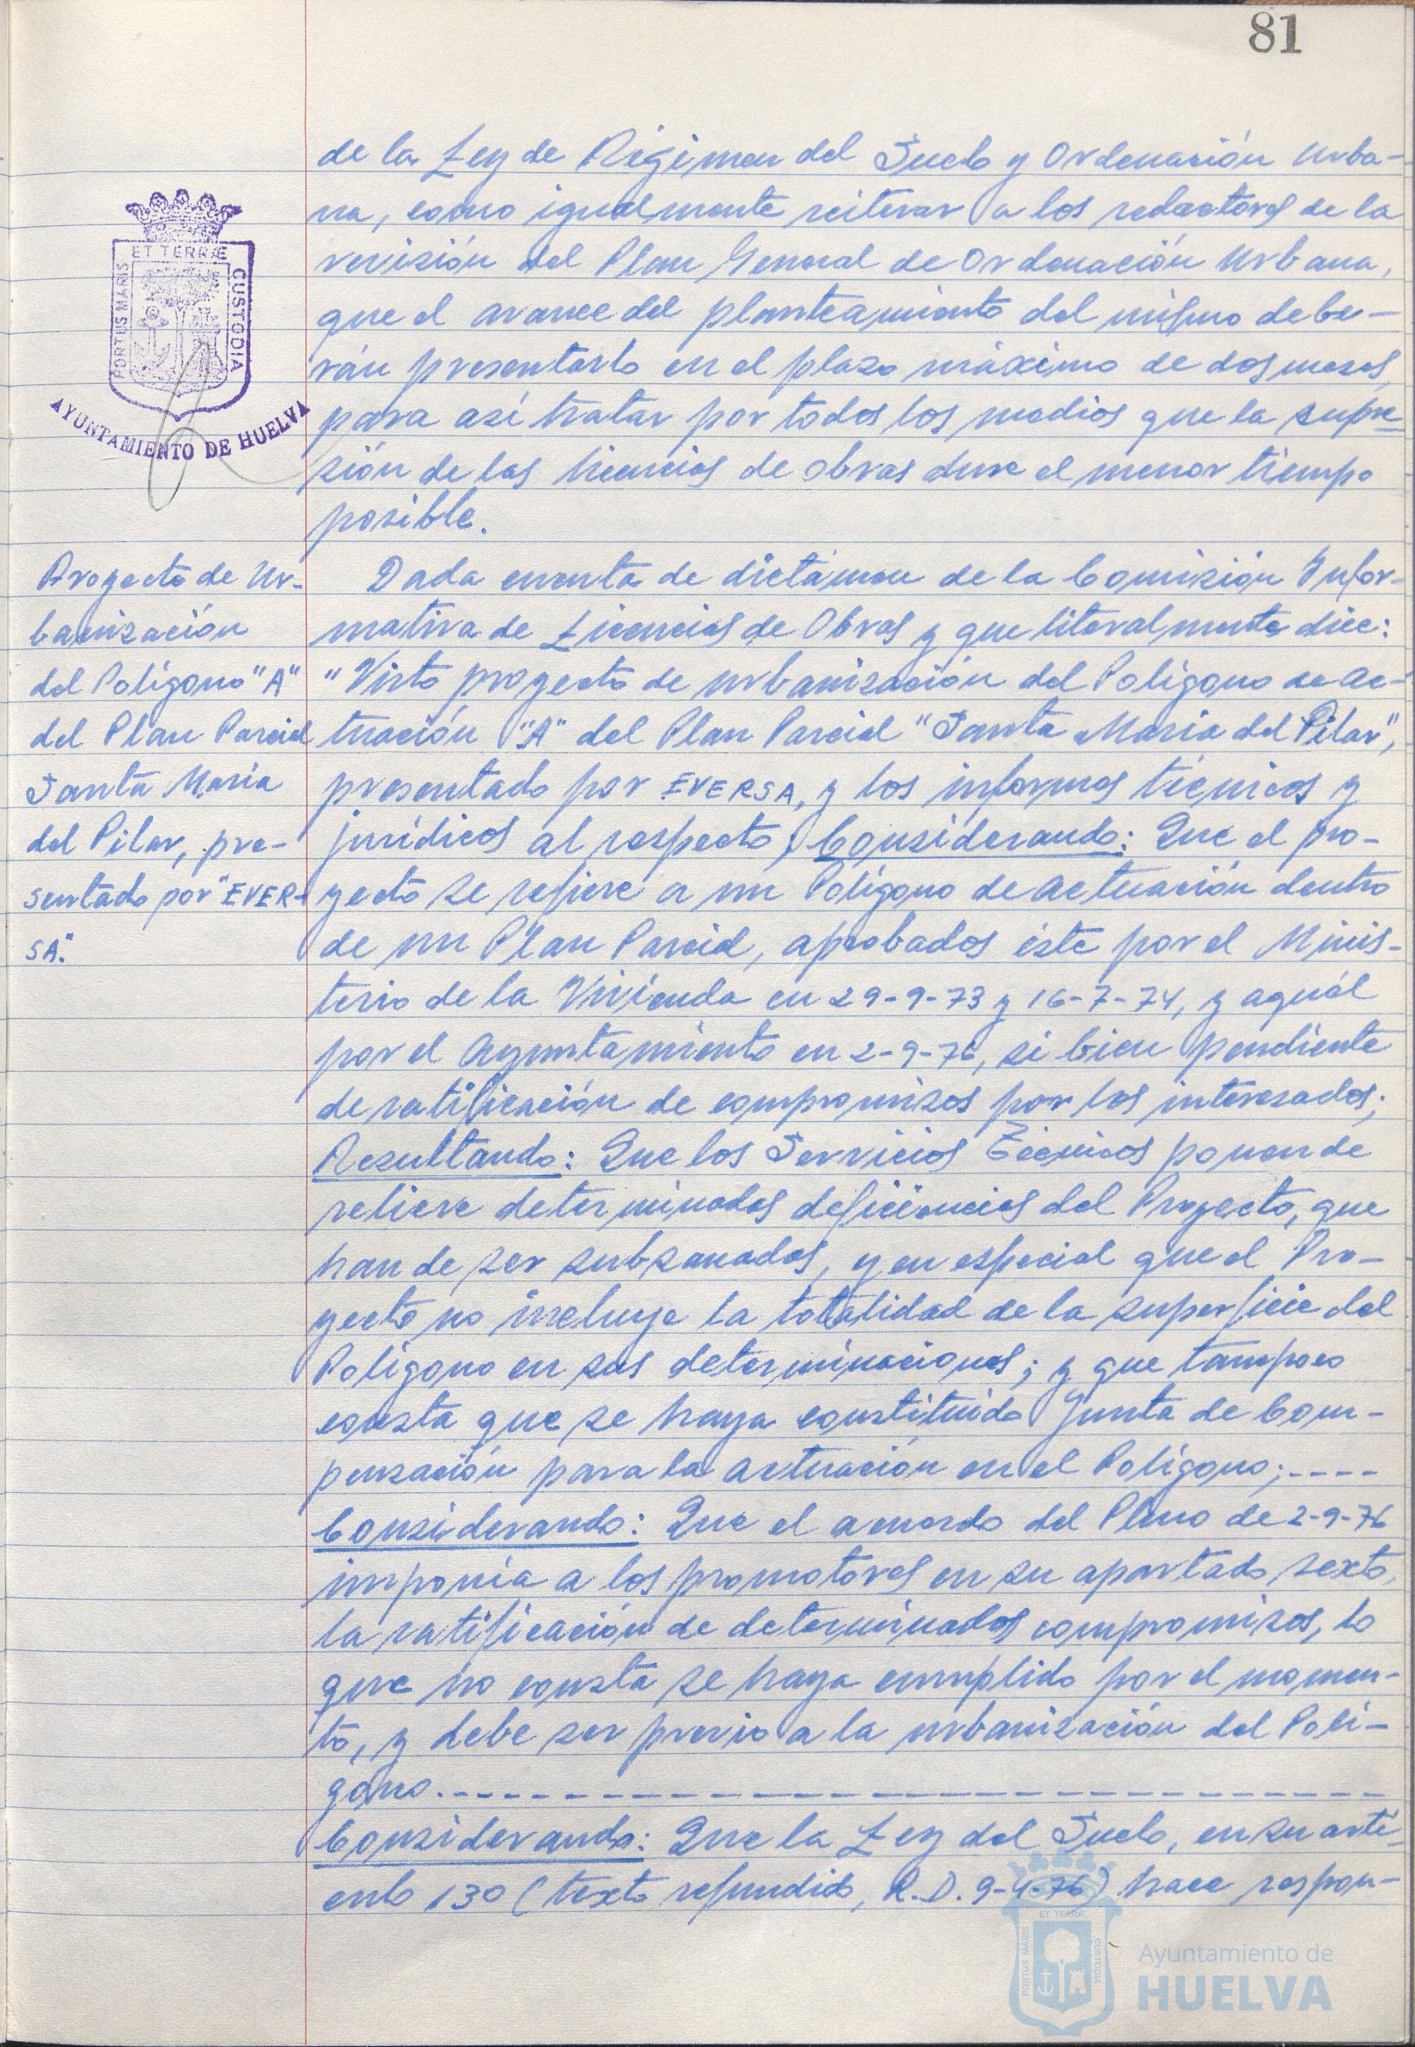 81
de la Ley de Régimen del Suelo y Ordenación Urba-
na, como igualmente reiterar a los redactores de la
revisión del Plan General de Ordenación Urbana,
que el avance del planteamiento del mismo debe-
rán presentarlo en el plazo máximo de dos meses,
para así tratar por todos los medios que la supre-
sión de las licencias de obras dure el menor tiempo
posible.
PORTUS MARIS ET TERRÆ CUSTODIA
AYUNTAMIENTO DE HUELVA
Proyecto de Ur-
banización
del Polígono "A"
del Plan Parcial
Santa María
del Pilar, pre-
sentado por "EVER-
SA".
Dada cuenta de dictámen de la Comisión Infor-
mativa de Licencias de Obras y que literalmente dice:
"Visto proyecto de urbanización del Polígono de Ac-
tuación "A" del Plan Parcial "Santa María del Pilar",
presentado por EVERSA, y los informes técnicos y
jurídicos al respecto; Considerando: Que el pro-
yecto se refiere a un Polígono de actuación dentro
de un Plan Parcial, aprobados éste por el Minis-
terio de la Vivienda en 29-9-73 y 16-7-74, y aquél
por el Ayuntamiento en 2-9-76, si bien pendiente
de ratificación de compromisos por los interesados;
Resultando: Que los Servicios Técnicos ponen de
relieve determinadas deficiencias del Proyecto, que
han de ser subsanadas, y en especial que el Pro-
yecto no incluye la totalidad de la superficie del
Polígono en sus determinaciones; y que tampoco
consta que se haya constituido Junta de Com-
pensación para la actuación en el Polígono;----
Considerando: Que el acuerdo del Pleno de 2-9-76
imponía a los promotores en su apartado sexto,
la ratificación de determinados compromisos, lo
que no consta se haya cumplido por el momen-
to, y debe ser previo a la urbanización del Polí-
gono.-----------------------------
Considerando: Que la Ley del Suelo, en su artí-
culo 130 (texto refundido, R.D. 9-4-76) hace respon-
PORTUS MARIS ET TERRÆ CUSTODIA
Ayuntamiento de
HUELVA